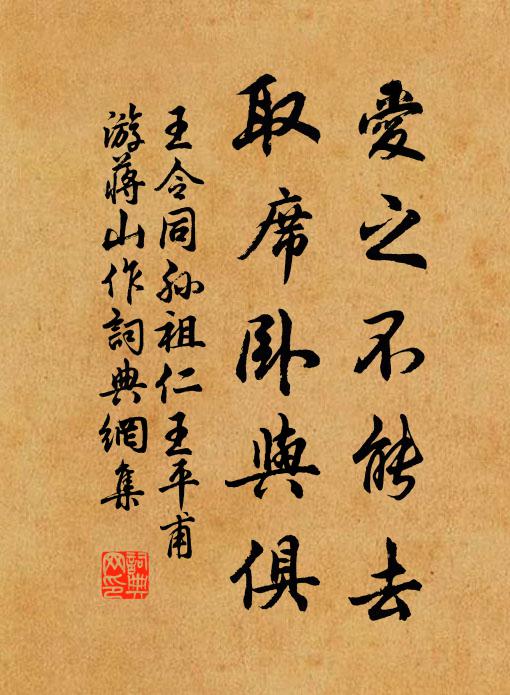 愛之不能去
取席卧與俱
王令同孫祖仁王平甫
游蔣山作詞典網集
詞典
网印